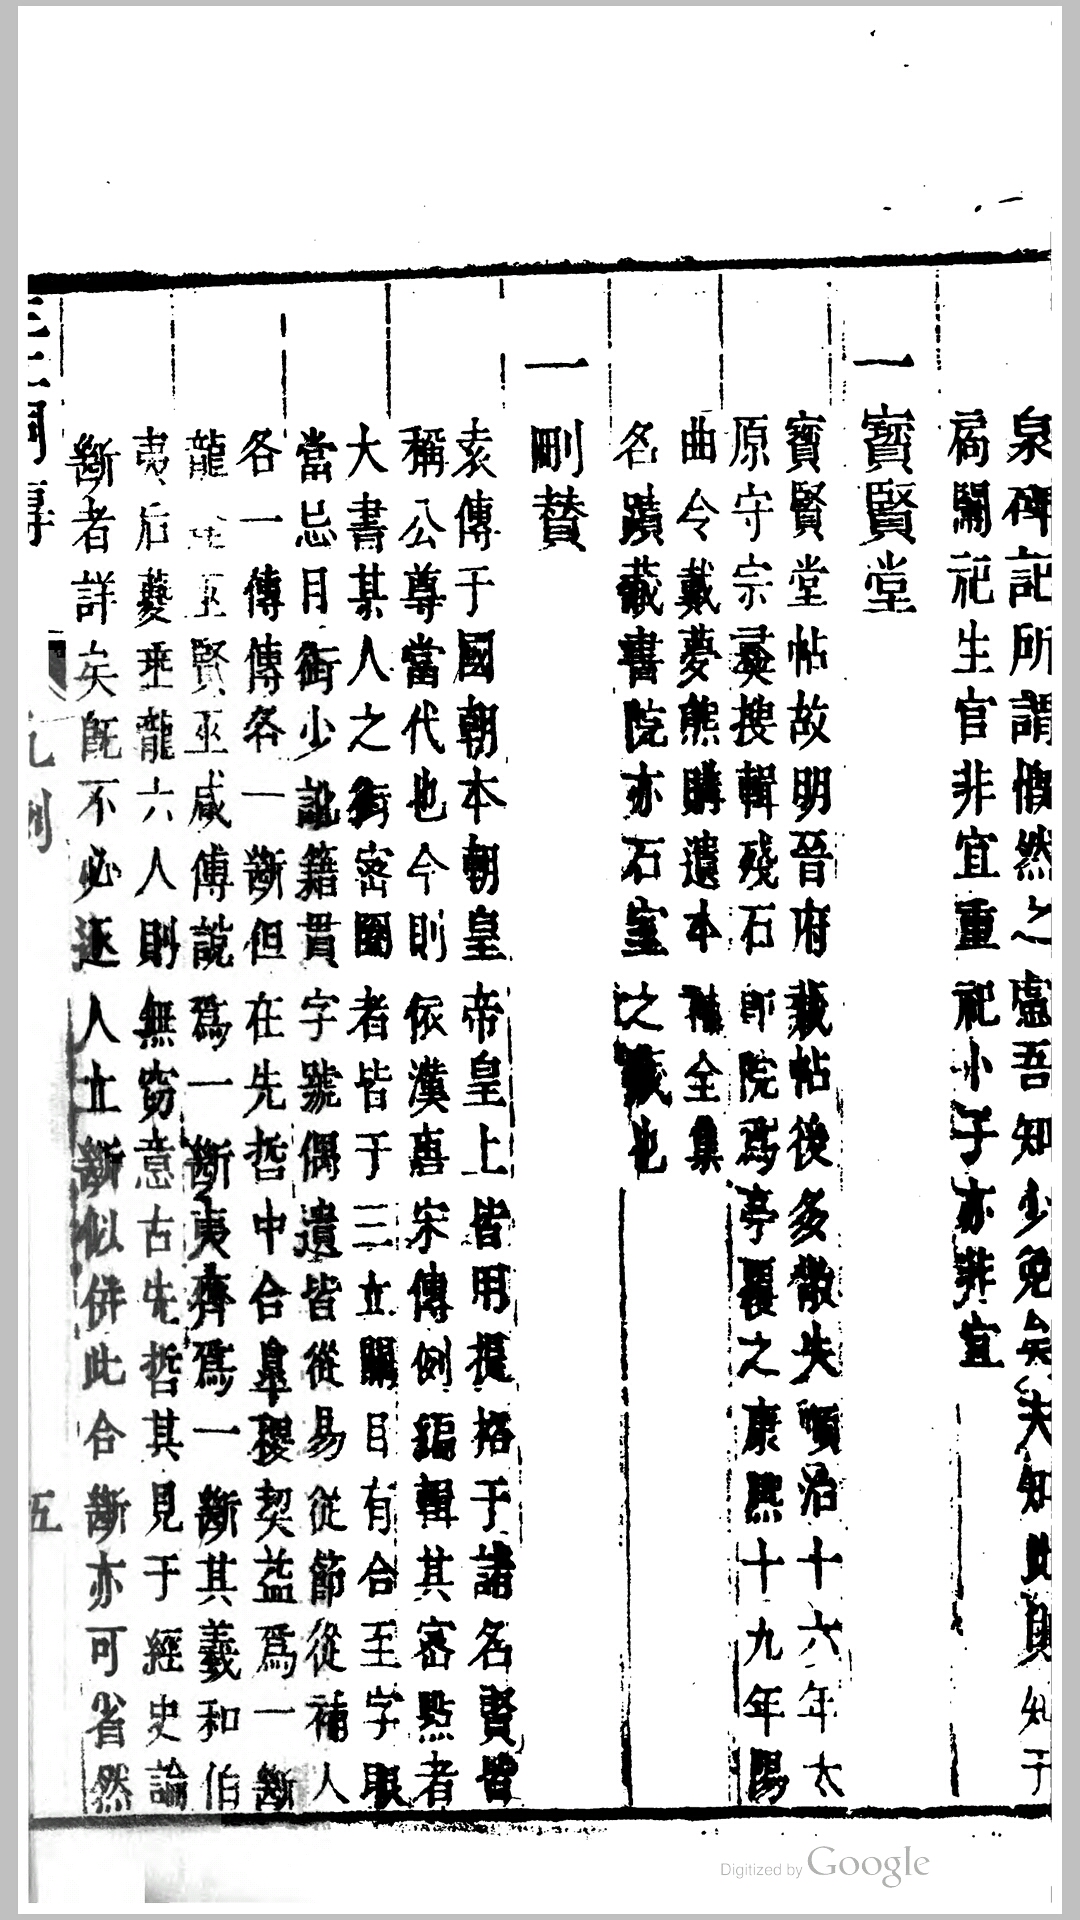 泉碑記所謂慨然之虛吾知少免矣夫知此則知于
喬關祀生官非宜重祀小子亦非宜
一寶賢堂
寶賢堂帖故明晉府藏帖後多散失順治十六年太
原守宗彛搜輯殘石即院爲亭覆之康熙十九年陽
曲令戴夢熊購遺本補全集
名蹟藏書院亦石室之藏也
一刪贊
表傳于國朝本朝皇帝皇上皆用擡拓于諸名賢皆
稱公尊當代也今則依漢唐宋傳例編輯其密點者
大書某人之銜密圈者皆于三立關目有合至字眼
當忌日銜少訛籍貫字號偶遺皆從易從節從補人
各一傳傳各一斷但在先哲中合臯稷契益爲一斷
龍巫賢巫咸傅說爲一斷夷齊爲一斷其羲和伯
夷后夔垂龍六人則無窮意古先哲其見于經史論
斷者詳矣旣不必逐人立斷似倂此合斷亦可省然
凡例
五
Digitized by Google